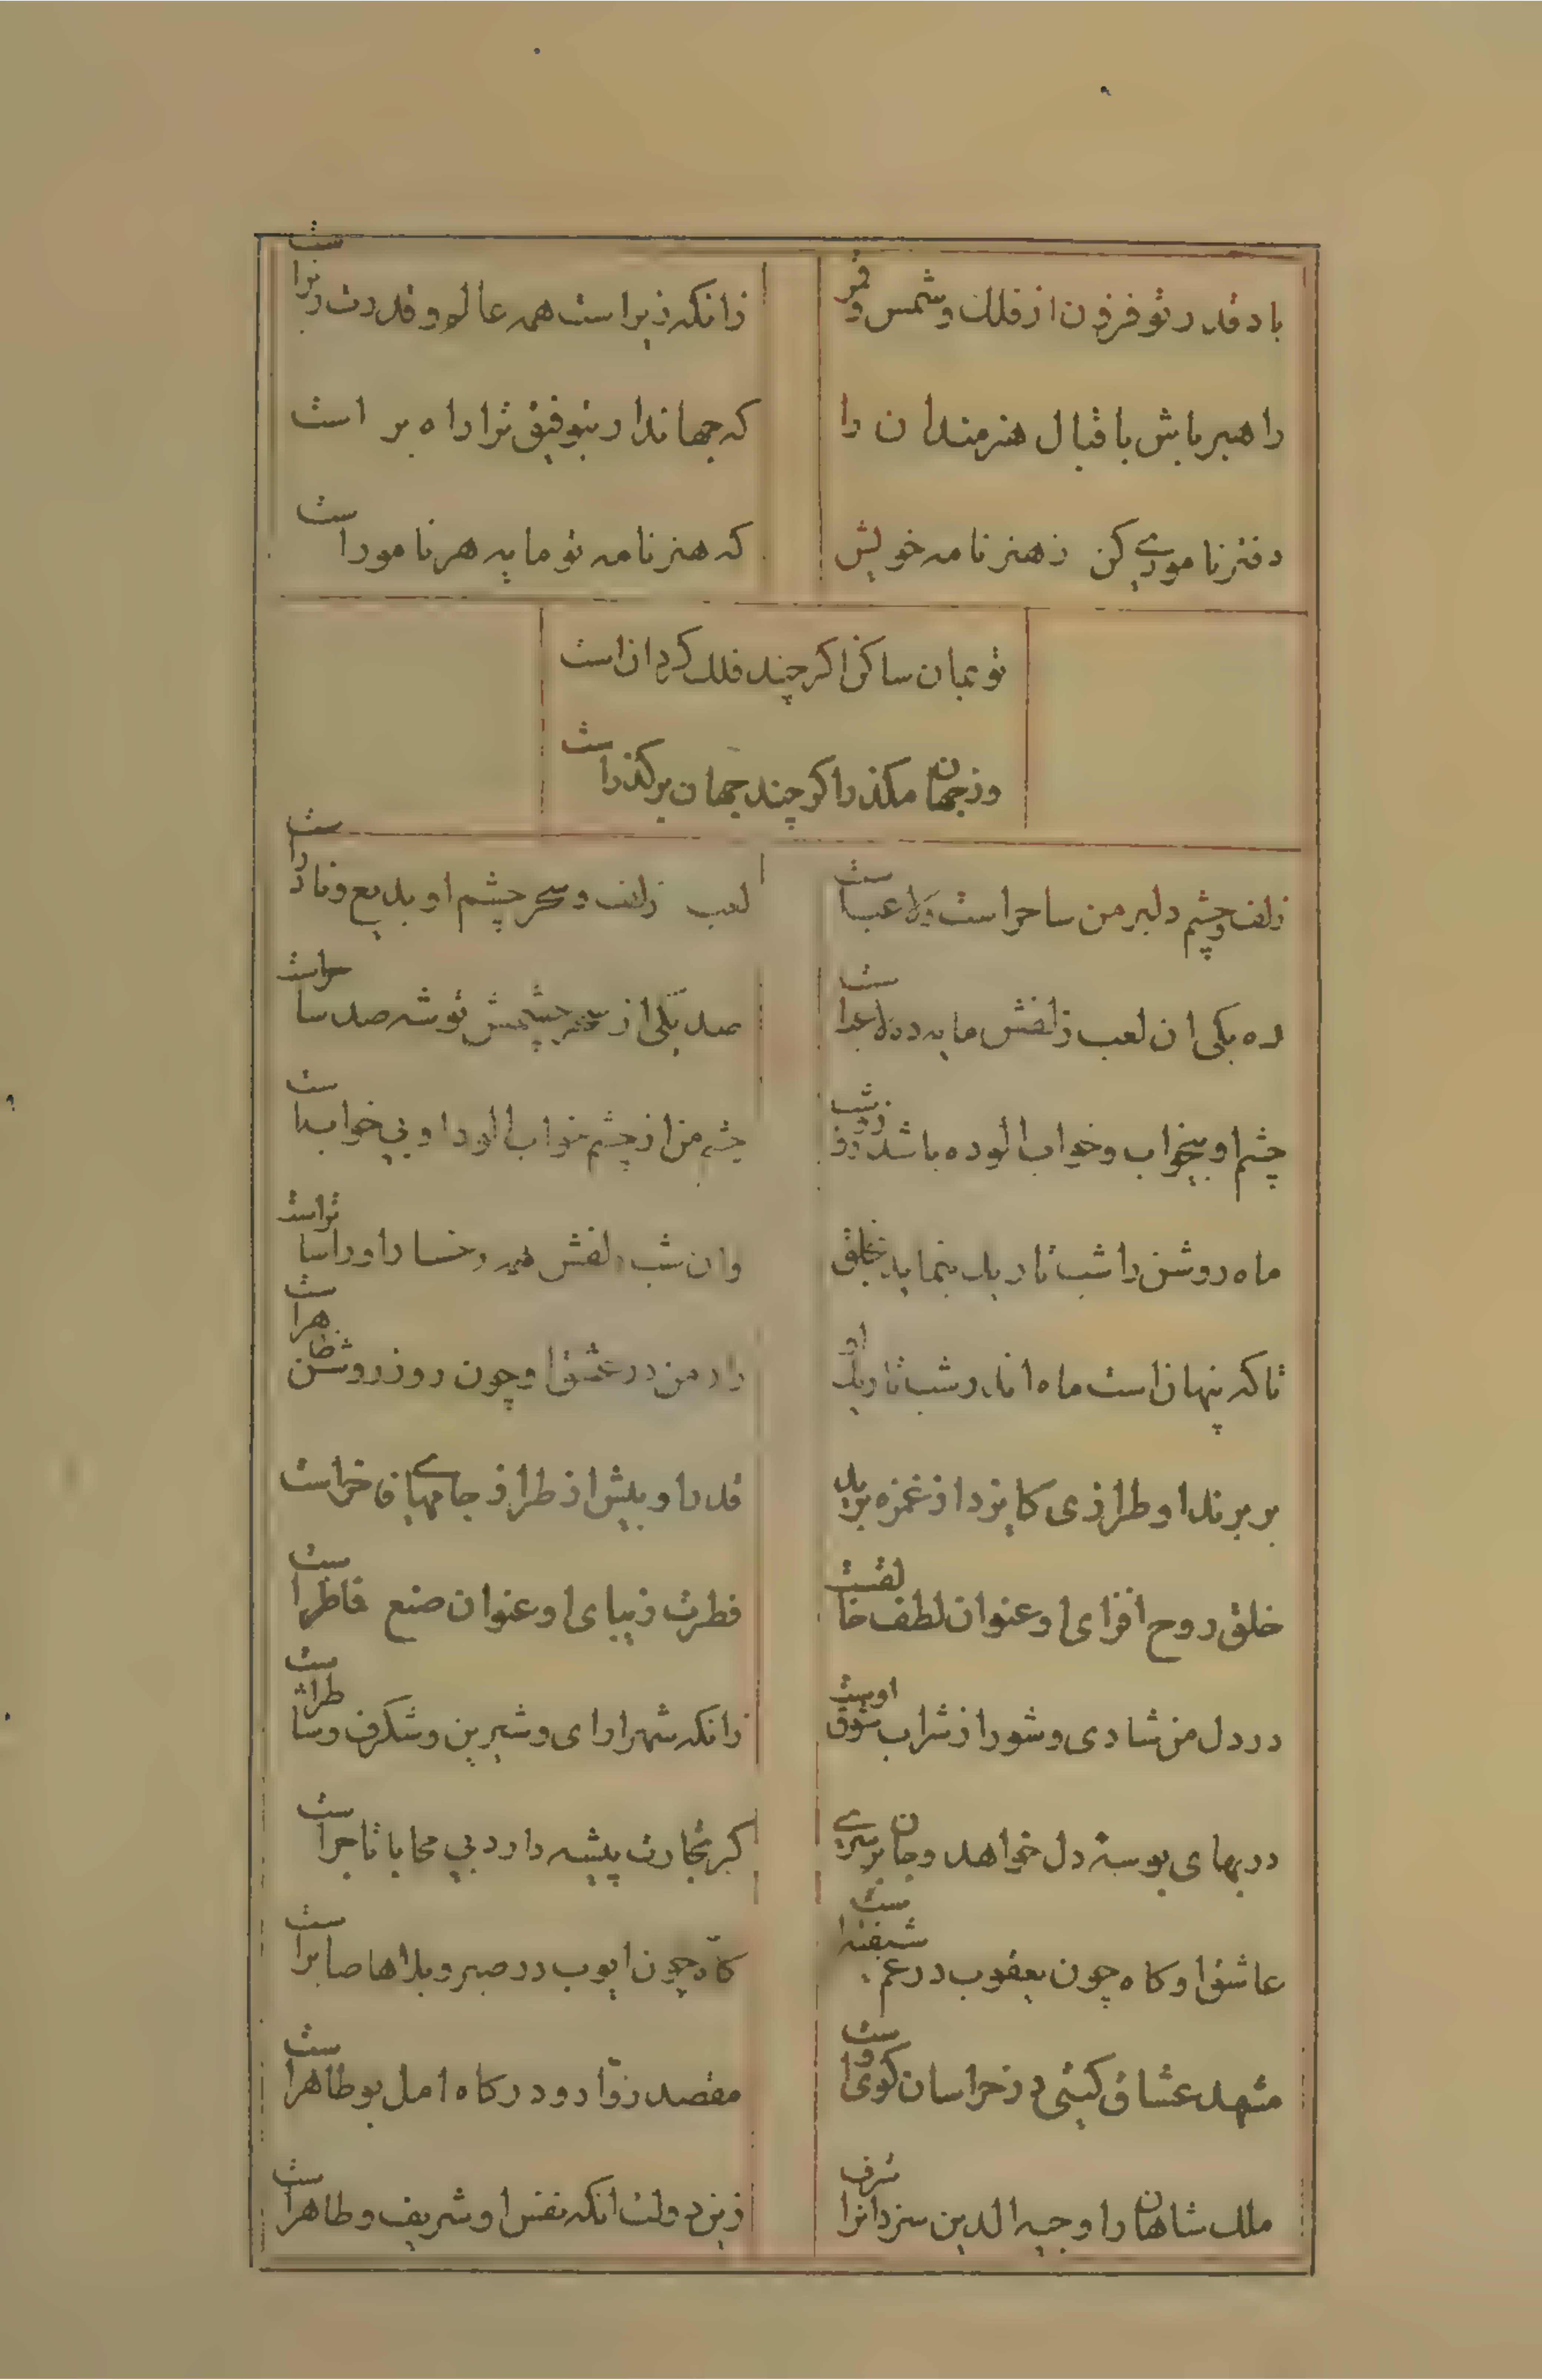 باد قدر تو فزون از فلک و شمس و قمر
زانکه زیر است همه عالم و قدرت زبر است
راهبر باش باقبال هنرمندان را
که جهاندار بتوفیق ترا راه بر است
دفتر ناموری کن ز هنرنامه خویش
که هنرنامه تو مایه هر نامور است
تو بمان ساکن اگر چند فلک گردان است
وز جهان مگذر اگر چند جهان برگذر است
زلف و چشم دلبر من ساحر است و لاعب است
لعب زلف و سحر چشم او بدیع و نادر است
ده یکی ان لعب زلفش مایه ده لاعب است
صد یکی از سحر چشمش توشه صد ساحر است
چشم او بیخواب و خواب الوده باشد روز و شب
چشم من از چشم خواب الود او بی خواب است
ماه روشن را شب تاریک بنماید بخلق
وان شب زلفش مه رخسار او را ساتر است
تا که پنهان است ماه اندر شب تاریک او
راز من در عشق او چون روز روشن ظاهر است
بر برند او طرازی کایزد از غمزه برید
قدر او بیش از طراز جامهای فاخر است
خلق روح افزای او عنوان لطف خالقست
فطرت زیبای او عنوان صنع فاطر است
در دل من شادی و شور از شراب شوق اوست
زانکه شهرارای و شیرین و شگرف و شاطر است
در بهای بوسه دل خواهد و جان بر سری
گر تجارت پیشه دارد بی محابا تاجر است
عاشق او گاه چون یعقوب در غم شیفته است
گاه چون ایوب در صبر و بلاها صابر است
مشهد عشاق گیتی در خراسان کوی اوست
مقصد زوار و درگاه امل بوطاهر است
ملک شاهان را وجیه الدین سزد انرا شرف
زین دولت انکه نفس او شریف و طاهر است